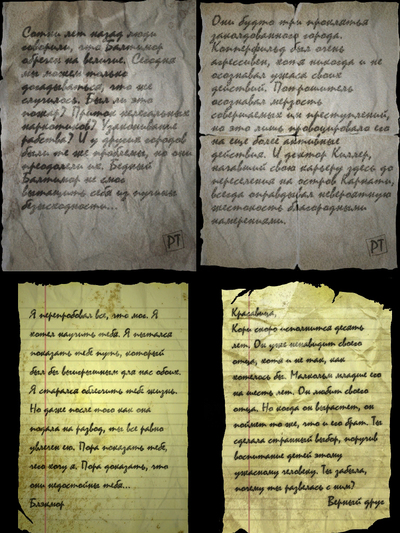 Сотни лет назад люди
говорили, что Балтимор
обречен на величие. Сегодня
мы можем только
догадываться, что же
случилось. Был ли это
пожар? Приток нелегальных
наркотиков? Узаконивание
рабства? И у других городов
были те же проблемы, но они
преодолели их. Бедный
Балтимор не смог
вытащить себя из пучины
безысходности...
PT
Они будто три проклятья
заколдованного города.
Копперфильд был очень
агрессивен, хотя никогда и не
осознавал ужаса своих
действий. Потрошитель
осознавал мерзость
совершаемых им преступлений,
но это лишь провоцировало его
на еще более активные
действия. И доктор Киллер,
начавший свою карьеру здесь до
переселения на остров Карнати,
всегда оправдывал невероятную
жестокость благородными
намерениями.
PT
Я перепробовал все, что мог. Я
хотел научить тебя. Я пытался
показать тебе путь, который
был бы выигрышным для нас обоих.
Я старался облегчить тебе жизнь.
Но даже после того как она
подала на развод, ты все равно
увлечен ею. Пора показать тебе,
чего хочу я. Пора доказать, что
они недостойны тебя...
Блэкмор
Красавица,
Кори скоро исполнится десять
лет. Он уже ненавидит своего
отца, хотя и не так, как
хотелось бы. Малкольм младше его
на шесть лет. Он любит своего
отца. Но когда он вырастет, он
поймет то же, что и его брат. Ты
сделала странный выбор, поручив
воспитание детей этому
ужасному человеку. Ты забыла,
почему ты развелась с ним?
Верный друг